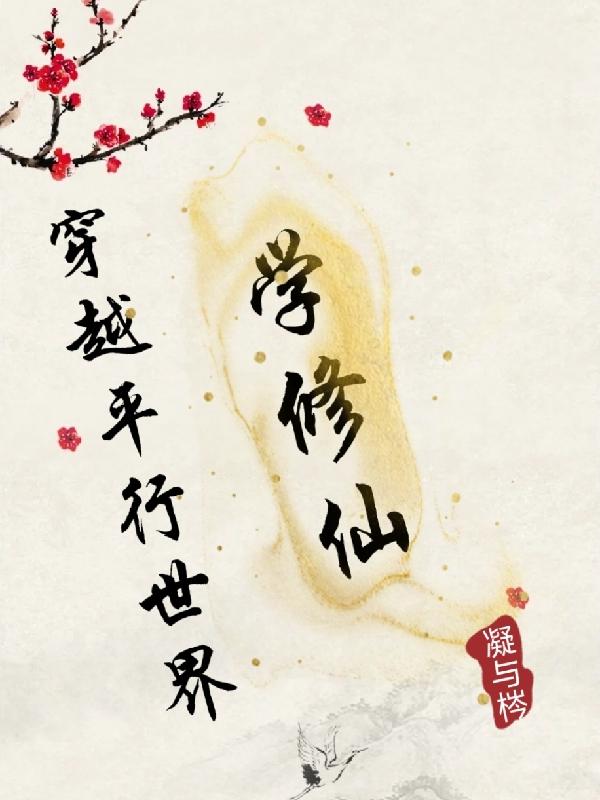 穿越平行世界
学修仙
凝与梣